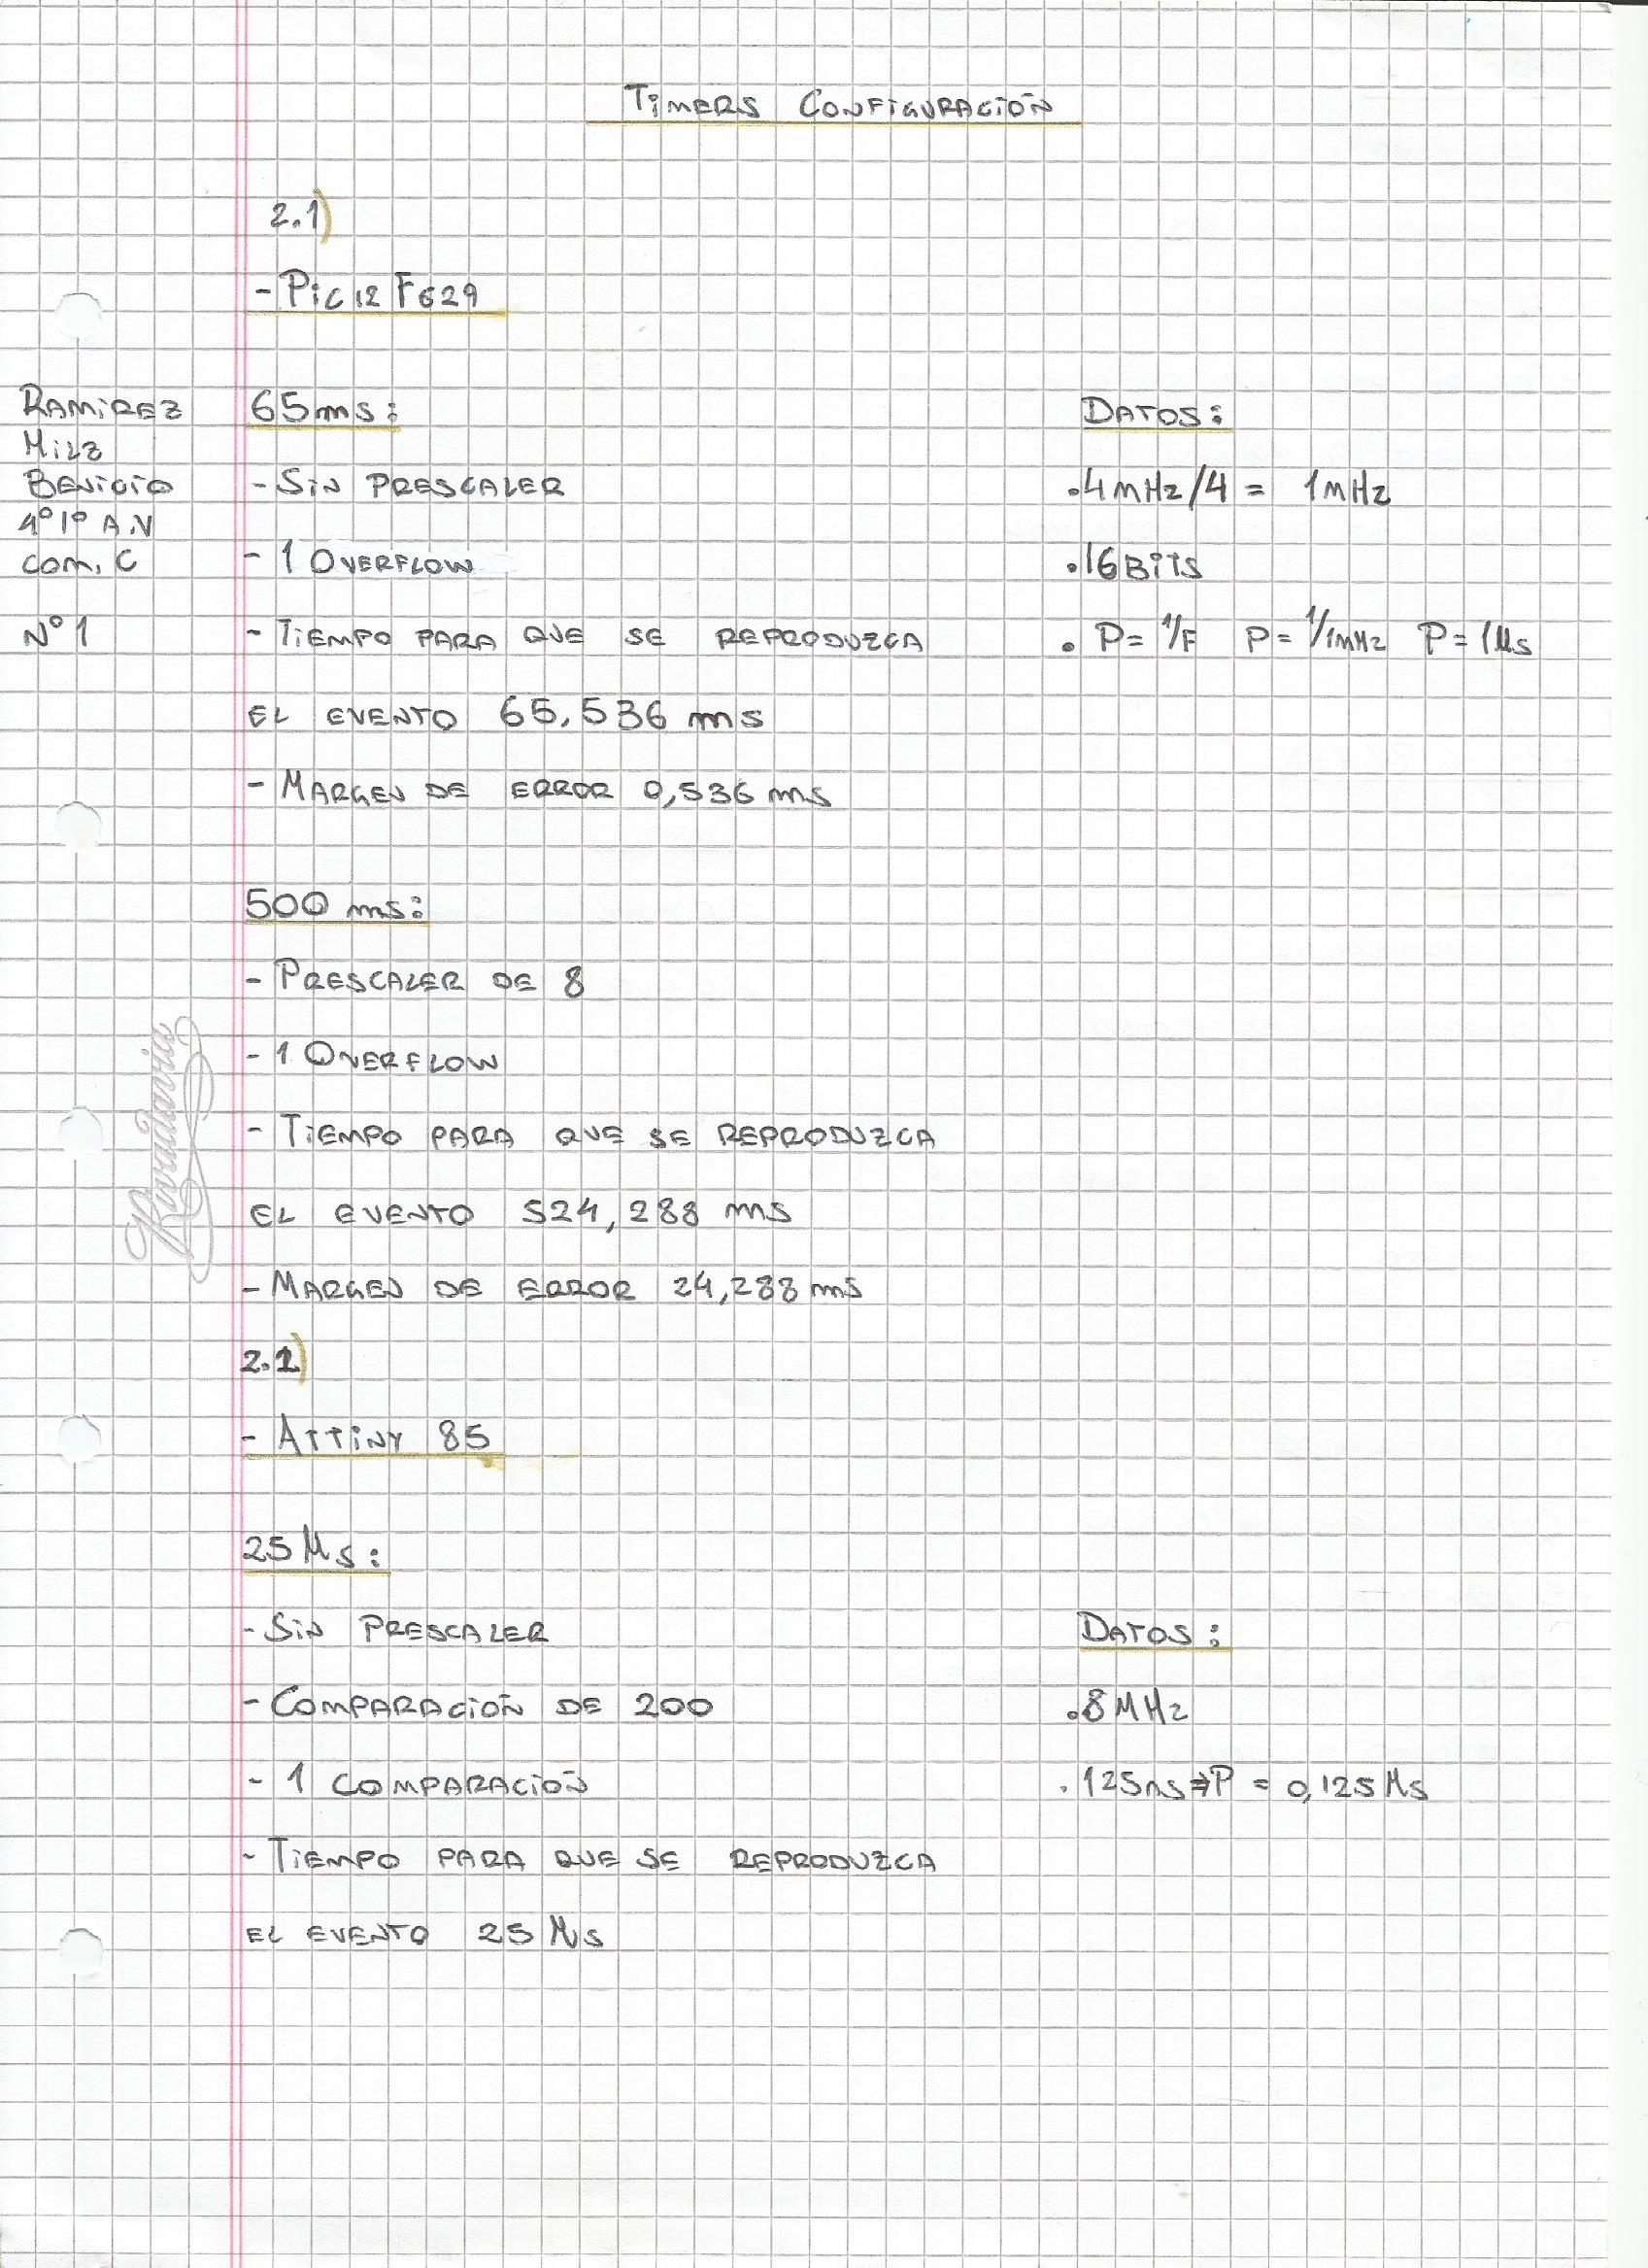 Timers Configuración
2.1)
- Pic12F629
Ramirez
Milz
Benicio
4° 1° A.V
com. C
N° 1
65ms:
- Sin prescaler
- 1 Overflow
- Tiempo para que se reproduzca
el evento 65,536 ms
- Margen de error 0,536 ms
Datos:
.4mHz/4 = 1mHz
.16Bits
. P= 1/F P= 1/1mHz P= 1Ms
500 ms:
- Prescaler de 8
- 1 Overflow
- Tiempo para que se reproduzca
el evento 524,288 ms
- Margen de error 24,288 ms
Rivadavia
2.2)
- Attiny 85
25 Ms:
- Sin prescaler
- Comparación de 200
- 1 comparación
- Tiempo para que se reproduzca
el evento 25 Ms
Datos:
.8MHz
.125ns⇒P = 0,125 Ms